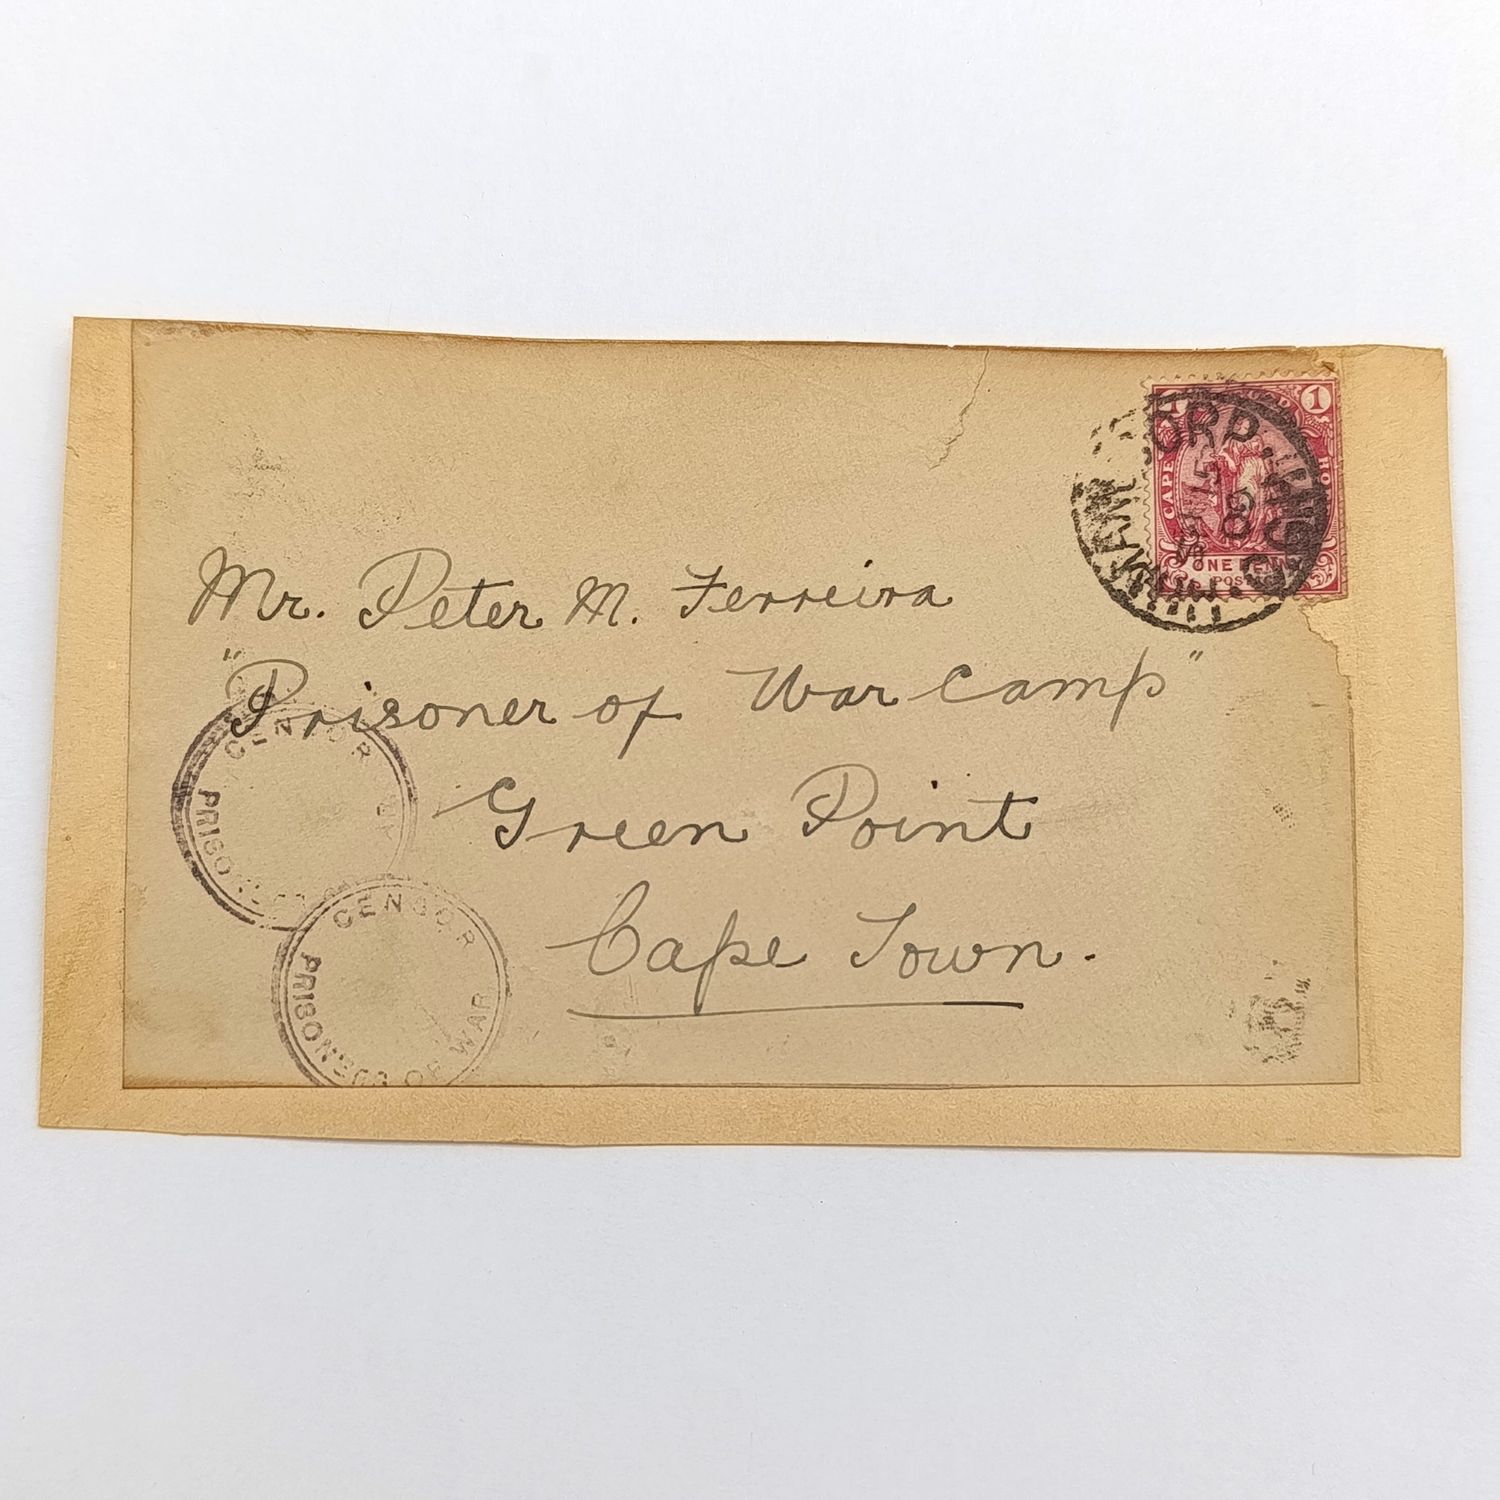 1 1
CAPE HO
ONE PENNY
POS
Mr. Peter M. Ferreira
"Prisoner of War Camp"
Green Point
Cape Town.
CENSOR
PRISO
CENSOR
PRISONERS OF WAR